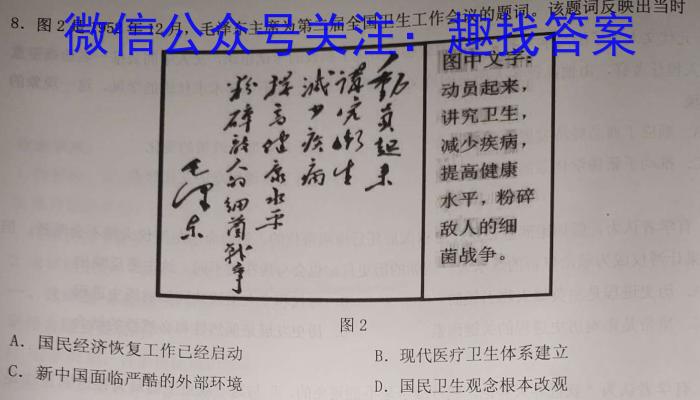 8. 图2是1952年12月，毛泽东主席为第二届全国卫生工作会议的题词。该题词反映出当时
微信公众号关注：趣找答案
动员起来
讲究卫生
减少疾病
提高健康水平
粉碎敌人的细菌战争
毛泽东
图中文字：
动员起来，
讲究卫生，
减少疾病，
提高健康
水平，粉碎
敌人的细
菌战争。
图2
A. 国民经济恢复工作已经启动
B. 现代医疗卫生体系建立
C. 新中国面临严酷的外部环境
D. 国民卫生观念根本改观